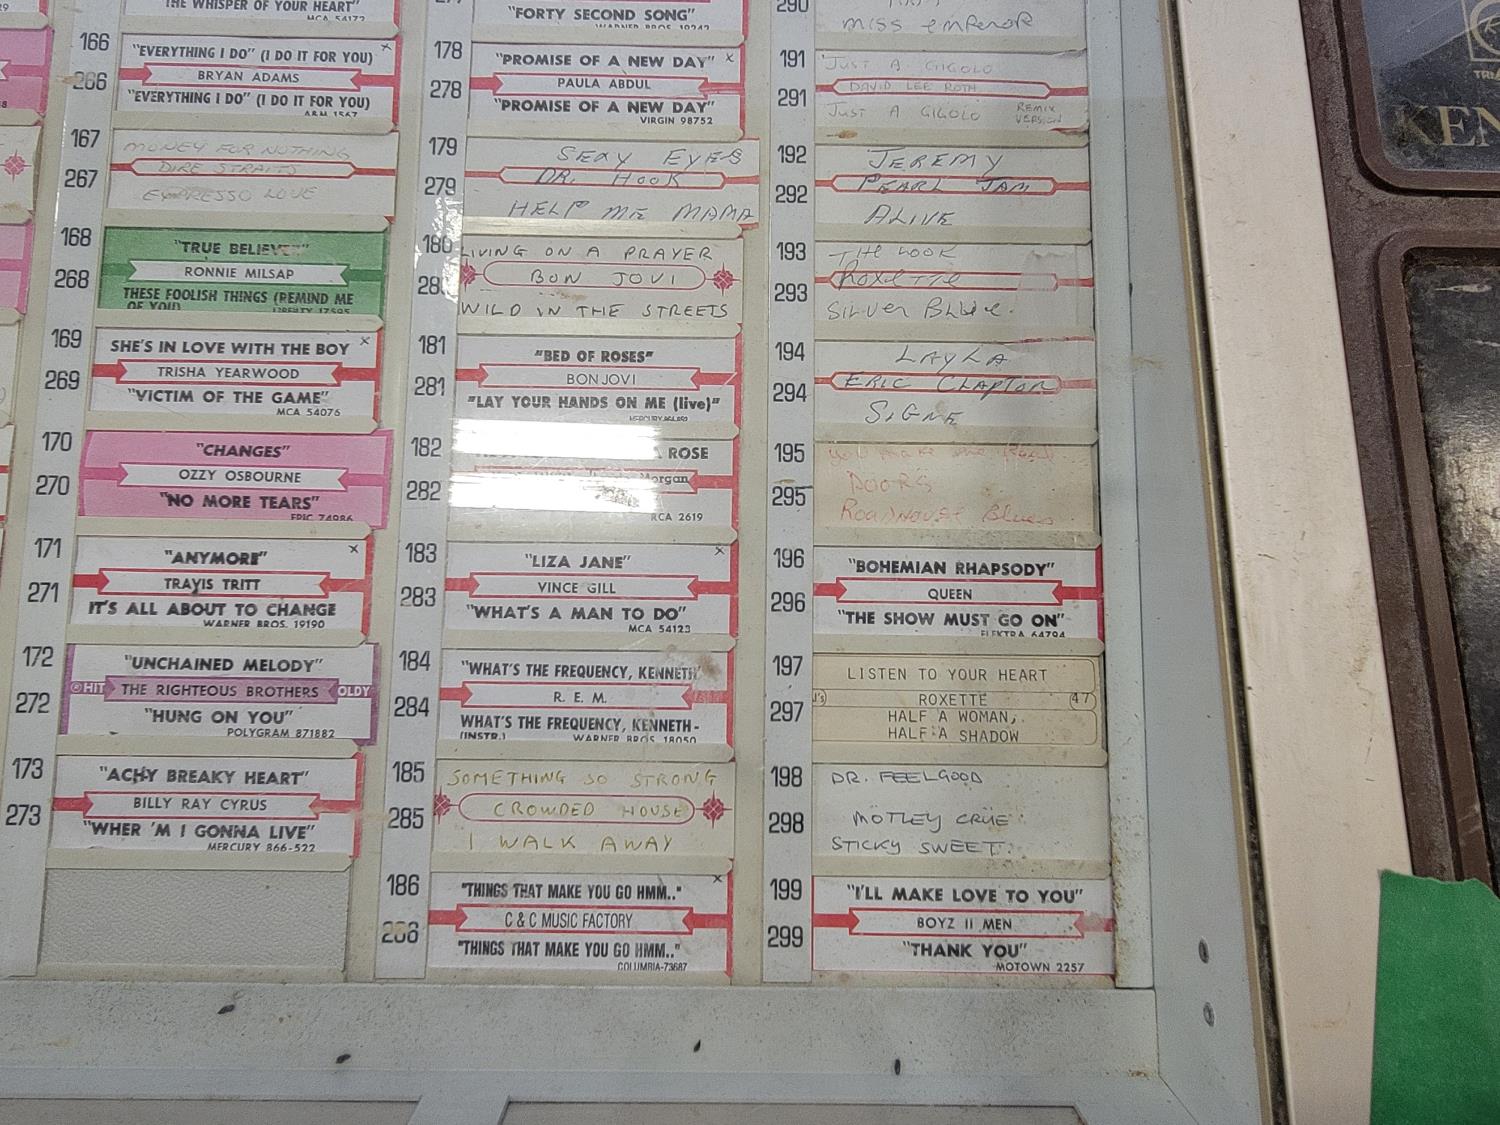 THE WHISPER OF YOUR HEART"
MCA 54172
166
266
"EVERYTHING I DO" (I DO IT FOR YOU)
BRYAN ADAMS
"EVERYTHING I DO" (I DO IT FOR YOU)
A&M 1567
167
267
MONEY FOR NOTHING
DIRE STRAITS
EXPRESSO LOVE
168
268
"TRUE BELIEVER"
RONNIE MILSAP
THESE FOOLISH THINGS (REMIND ME
OF YOU)
LIBERTY 17595
169
269
SHE'S IN LOVE WITH THE BOY
TRISHA YEARWOOD
"VICTIM OF THE GAME"
MCA 54076
170
270
"CHANGES"
OZZY OSBOURNE
"NO MORE TEARS"
EPIC 74986
171
271
"ANYMORE"
TRAVIS TRITT
IT'S ALL ABOUT TO CHANGE
WARNER BROS. 19190
172
272
"UNCHAINED MELODY"
HIT THE RIGHTEOUS BROTHERS OLDY
"HUNG ON YOU"
POLYGRAM 871882
173
273
"ACHY BREAKY HEART"
BILLY RAY CYRUS
"WHER 'M I GONNA LIVE"
MERCURY 866-522
"FORTY SECOND SONG"
WARNER BROS 19242
178
278
"PROMISE OF A NEW DAY"
PAULA ABDUL
"PROMISE OF A NEW DAY"
VIRGIN 98752
179
279
SEXY EYES
DR. HOOK
HELP ME MAMA
180
LIVING ON A PRAYER
BON JOVI
WILD IN THE STREETS
181
281
"BED OF ROSES"
BON JOVI
"LAY YOUR HANDS ON ME (live)"
182
282
A ROSE
Morgan
RCA 2619
183
283
"LIZA JANE"
VINCE GILL
"WHAT'S A MAN TO DO"
MCA 54123
184
284
"WHAT'S THE FREQUENCY, KENNETH
R. E. M.
WHAT'S THE FREQUENCY, KENNETH-
(INSTR.)
WARNER BROS 18050
185
285
SOMETHING SO STRONG
CROWDED HOUSE
I WALK AWAY
186
286
"THINGS THAT MAKE YOU GO HMM.."
C & C MUSIC FACTORY
"THINGS THAT MAKE YOU GO HMM.."
COLUMBIA-73687
290
MISS EMPEROR
191
291
JUST A GIGOLO
DAVID LEE ROTH
JUST A GIGOLO REMIX VERSION
192
292
JEREMY
PEARL JAM
ALIVE
193
293
THE LOOK
Roxette
SILVER BLUE.
194
294
LAYLA
ERIC CLAPTON
SIGNE
195
295
you make me Real
DOORS
Roadhouse Blues
196
296
"BOHEMIAN RHAPSODY"
QUEEN
"THE SHOW MUST GO ON"
ELEKTRA 64794
197
297
LISTEN TO YOUR HEART
J's ROXETTE 47
HALF A WOMAN,
HALF A SHADOW
198
298
DR. FEELGOOD
MOTLEY CRUE
STICKY SWEET
199
299
"I'LL MAKE LOVE TO YOU"
BOYZ II MEN
"THANK YOU"
MOTOWN 2257
KEN